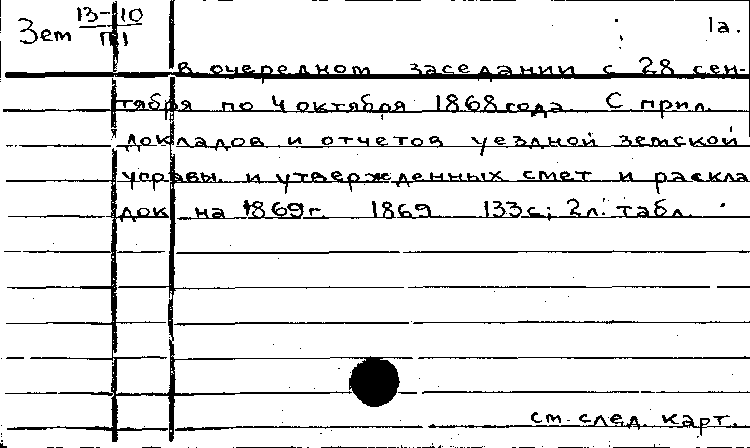 Зем 13-10 1а.
П1
в очередном заседании с 28 сен-
тября по 4 октября 1868 года. С прил.
докладов и отчетов уездной земской
управы. и утвержденных смет и раскла
док на 1869г. 1869 133с; 2л. табл.
см. след. карт.